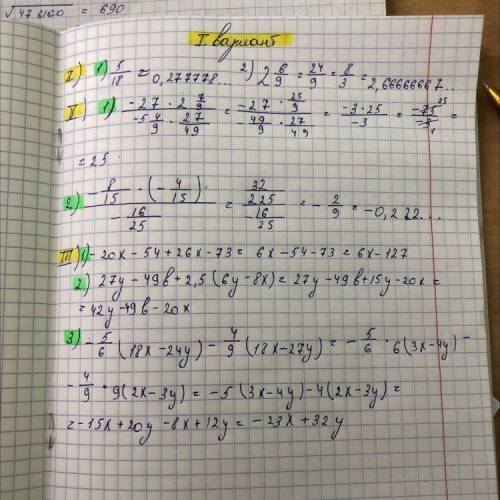 √476100 = 690
I вариант
I) 1) 5/18 ≈ 0,277778... 2) 2 6/9 = 24/9 = 8/3 = 2,6666667...
II) 1) (-27 · 2 7/9)/(-5 4/9 · 27/49) = (-27 · 25/9)/(-49/9 · 27/49) = (-3·25)/(-3) = (-75 25)/(-3 1) =
= 25
2) (-8/15 · (-4/15))/(-16/25) = (32/225)/(-16/25) = -2/9 = -0,222...
III) 1) -20x - 54 + 26x - 73 = 6x - 54 - 73 = 6x - 127
2) 27y - 49в + 2,5(6y - 8x) = 27y - 49в + 15y - 20x =
= 42y - 49в - 20x
3) -5/6 (18x - 24y) - 4/9 (18x - 27y) = -5/6 · 6(3x - 4y) -
- 4/9 · 9(2x - 3y) = -5(3x - 4y) - 4(2x - 3y) =
= -15x + 20y - 8x + 12y = -23x + 32y